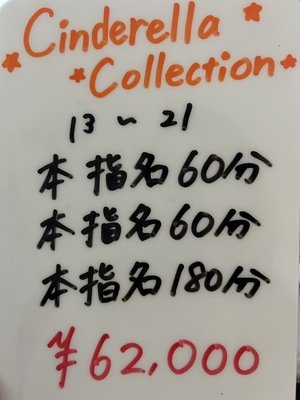 Cinderella
Collection
13〜21
本指名60分
本指名60分
本指名180分
¥62,000